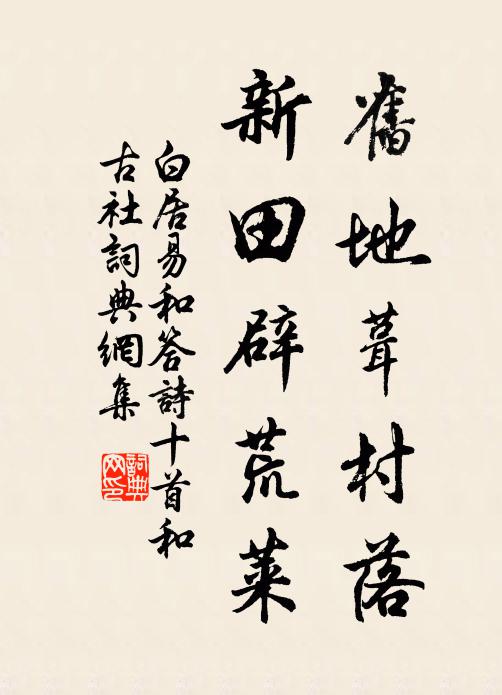 舊地葺村落
新田辟荒萊
白居易和答詩十首和
古社詞典網集
詞典网印